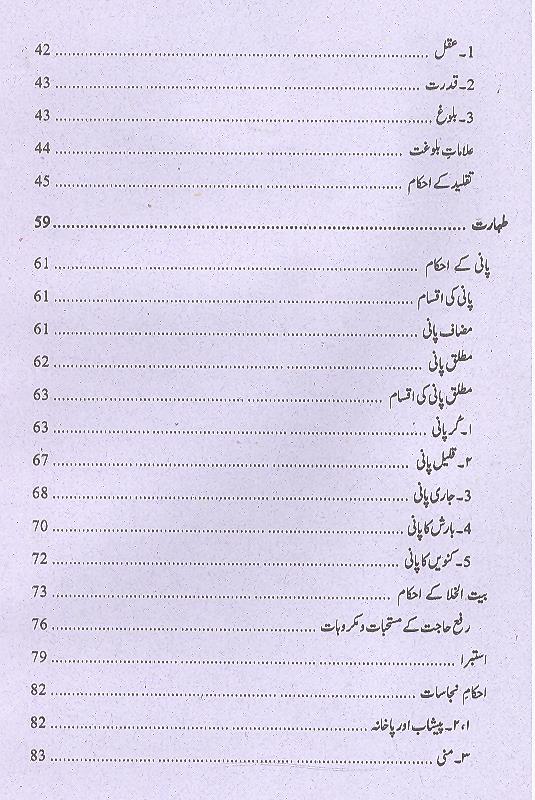 1۔عقل ........ 42
2۔قدرت ........ 43
3۔بلوغ ........ 43
علاماتِ بلوغت ........ 44
تقلید کے احکام ........ 45
طہارت ........ 59
پانی کے احکام ........ 61
پانی کی اقسام ........ 61
مضاف پانی ........ 61
مطلق پانی ........ 62
مطلق پانی کی اقسام ........ 63
۱۔کُر پانی ........ 63
۲۔قلیل پانی ........ 67
3۔جاری پانی ........ 68
4۔بارش کا پانی ........ 70
5۔کنویں کا پانی ........ 72
بیت الخلا کے احکام ........ 73
رفع حاجت کے مستحبات و مکروہات ........ 76
استبرا ........ 79
احکامِ نجاسات ........ 82
۱،۲۔پیشاب اور پاخانہ ........ 82
۳۔منی ........ 83